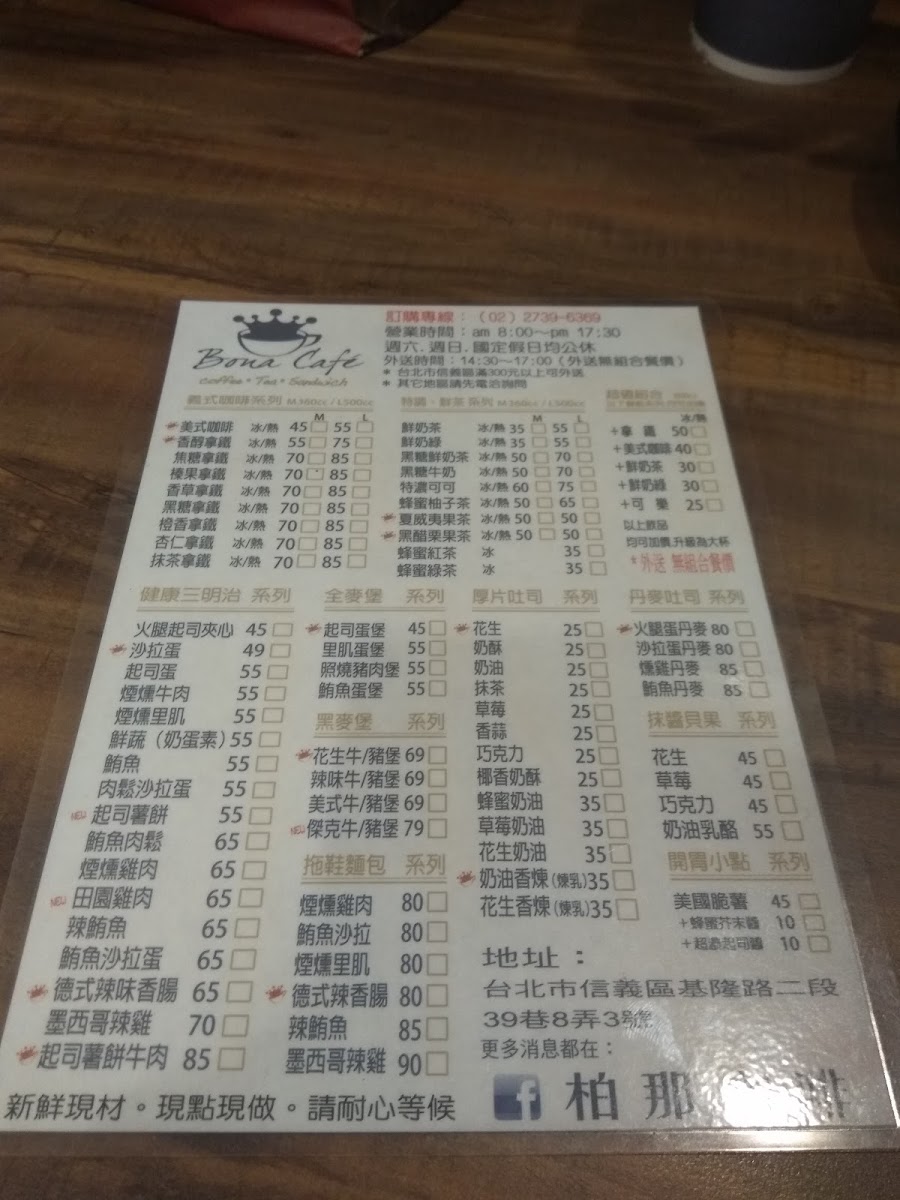 Bona Café
coffee • Tea • Sandwich
訂購專線：（02）2739-6369
營業時間：am 8:00～pm 17:30
週六.週日.國定假日均公休
外送時間：14:30～17:00（外送無組合餐價）
* 台北市信義區滿300元以上可外送
* 其它地區請先電洽詢問
義式咖啡系列 M.360cc / L.500cc
M L
美式咖啡 冰/熱 45 55
香醇拿鐵 冰/熱 55 75
焦糖拿鐵 冰/熱 70 85
榛果拿鐵 冰/熱 70 85
香草拿鐵 冰/熱 70 85
黑糖拿鐵 冰/熱 70 85
橙香拿鐵 冰/熱 70 85
杏仁拿鐵 冰/熱 70 85
抹茶拿鐵 冰/熱 70 85
特調、鮮茶 系列 M.360cc / L.500cc
M L
鮮奶茶 冰/熱 35 55
鮮奶綠 冰/熱 35 55
黑糖鮮奶茶 冰/熱 50 70
黑糖牛奶 冰/熱 50 70
特濃可可 冰/熱 60 75
蜂蜜柚子茶 冰/熱 50 65
夏威夷果茶 冰/熱 50 50
黑醋栗果茶 冰/熱 50 50
蜂蜜紅茶 冰 35
蜂蜜綠茶 冰 35
超值組合
冰/熱
+拿 鐵 50
+美式咖啡 40
+鮮奶茶 30
+鮮奶綠 30
+可 樂 25
以上飲品
均可加價,升級為大杯
*外送 無組合餐價
健康三明治 系列
火腿起司夾心 45
沙拉蛋 49
起司蛋 55
煙燻牛肉 55
煙燻里肌 55
鮮蔬（奶蛋素）55
鮪魚 55
肉鬆沙拉蛋 55
NEW 起司薯餅 55
鮪魚肉鬆 65
煙燻雞肉 65
NEW 田園雞肉 65
辣鮪魚 65
鮪魚沙拉蛋 65
德式辣味香腸 65
墨西哥辣雞 70
起司薯餅牛肉 85
全麥堡 系列
起司蛋堡 45
里肌蛋堡 55
照燒豬肉堡 55
鮪魚蛋堡 55
黑麥堡 系列
花生牛/豬堡 69
辣味牛/豬堡 69
美式牛/豬堡 69
NEW 傑克牛/豬堡 79
拖鞋麵包 系列
煙燻雞肉 80
鮪魚沙拉 80
煙燻里肌 80
德式辣香腸 80
辣鮪魚 85
墨西哥辣雞 90
厚片吐司 系列
花生 25
奶酥 25
奶油 25
抹茶 25
草莓 25
香蒜 25
巧克力 25
椰香奶酥 25
蜂蜜奶油 35
草莓奶油 35
花生奶油 35
奶油香煉（煉乳）35
花生香煉（煉乳）35
丹麥吐司 系列
火腿蛋丹麥 80
沙拉蛋丹麥 80
燻雞丹麥 85
鮪魚丹麥 85
抹醬貝果 系列
花生 45
草莓 45
巧克力 45
奶油乳酪 55
開胃小點 系列
美國脆薯 45
+蜂蜜芥末醬 10
+超濃起司醬 10
地址：
台北市信義區基隆路二段
39巷8弄3號
更多消息都在：
f 柏那 啡
新鮮現材。現點現做。請耐心等候